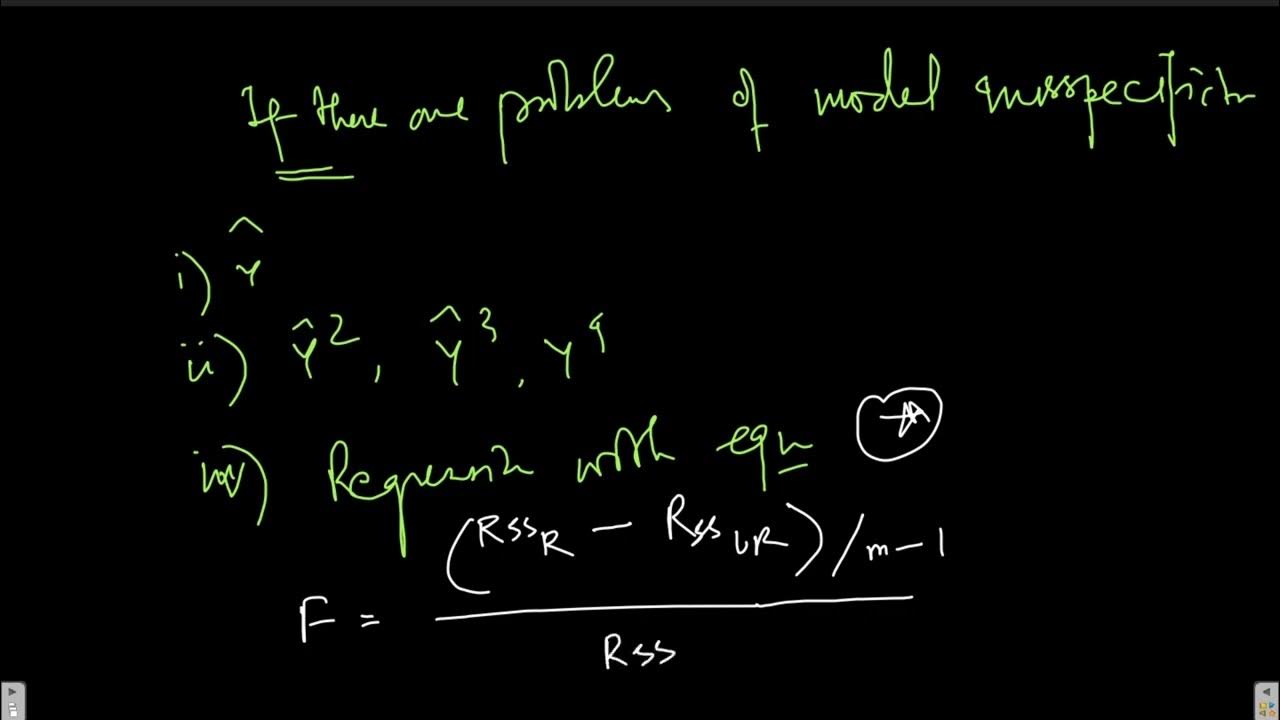 If there are problems of model misspecificatn
i) Ŷ
ii) Ŷ², Ŷ³, Y⁴
iv) Regression with eqn
(RSS_R − RSS_UR) / m − 1
F =
RSS